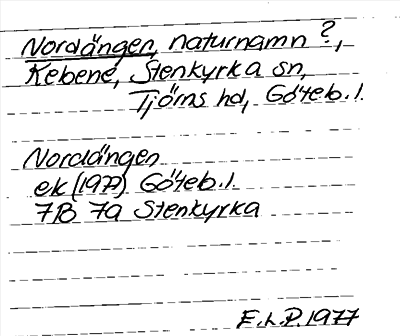 Nordängen, naturnamn?,
Kebene, Stenkyrka sn,
Tjörns hd, Göteb.l.
Nordängen
ek (1977) Göteb.l.
7B 7a Stenkyrka
E.L.P. 1977